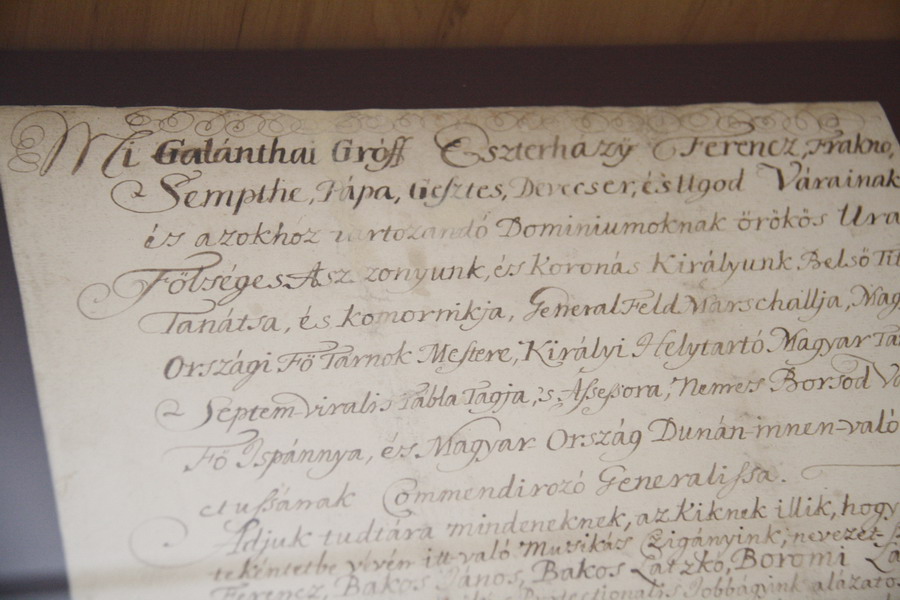 Mi Galánthai Gróff Eszterhazÿ Ferencz, Frakno,
Sempthe, Pápa, Gesztes, Devecser, és Ugod Várainak
és azokhoz tartozandó Dominiumoknak örökös Ura
Fölséges Asz zonyunk, és Koronás Királyunk Belső Tit
Tanátsa, és Komornikja, General Feld Marschallja, Mag
Országi Fö Tarnok Mestere, Királyi Helytartó Magyar Ta
Septem-viralis Tábla Tagja, 's Assessora, Nemes Borsod Vá
Fö Ispánnya, és Magyar Ország Dunán-innen-való
ctussának Commendirozó Generalissa.
Adjuk tudtára mindeneknek, az kiknek illik, hogy
tekéntetbe vévén itt-való Musikás Czigányink, nevezet-
Ferencz, Bakos János, Bakos Latzkó, Boromi
Protectionalis Jobbágyink alázatos